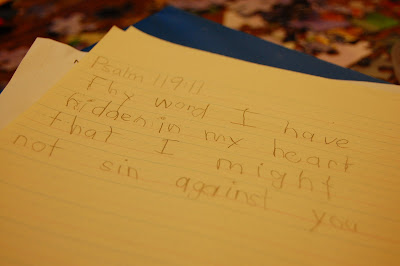 Psalm 119:11
Thy word I have
hidden in my heart
that I might
not sin against you